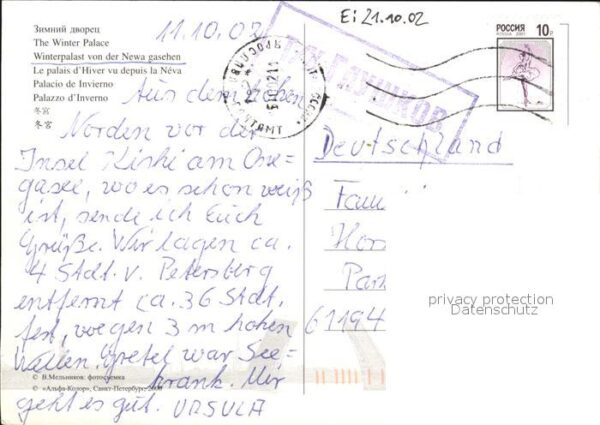 11.10.02
Ei 21.10.02
Зимний дворец
The Winter Palace
Winterpalast von der Newa gasehen
Le palais d'Hiver vu depuis la Néva
Palacio de Invierno
Palazzo d'Inverno
冬宮
冬宮
РОССИЯ 10р
Aus dem hohen
Norden vor der
Insel Kishi am One=
gasee, wo es schon weiß
ist, sende ich Euch
Grüße. Wir lagen ca.
4 Stdt. v. Petersberg
entfernt ca. 36 Stdt.
fest, wegen 3 m hohen
Wellen. Gretel war See=
krank. Mir
geht es gut. URSULA
Deutschland
Fam
Hors
Park
61194
privacy protection
Datenschutz
© В.Мельников: фотосъемка
© «Альфа-Колор», Санкт-Петербург